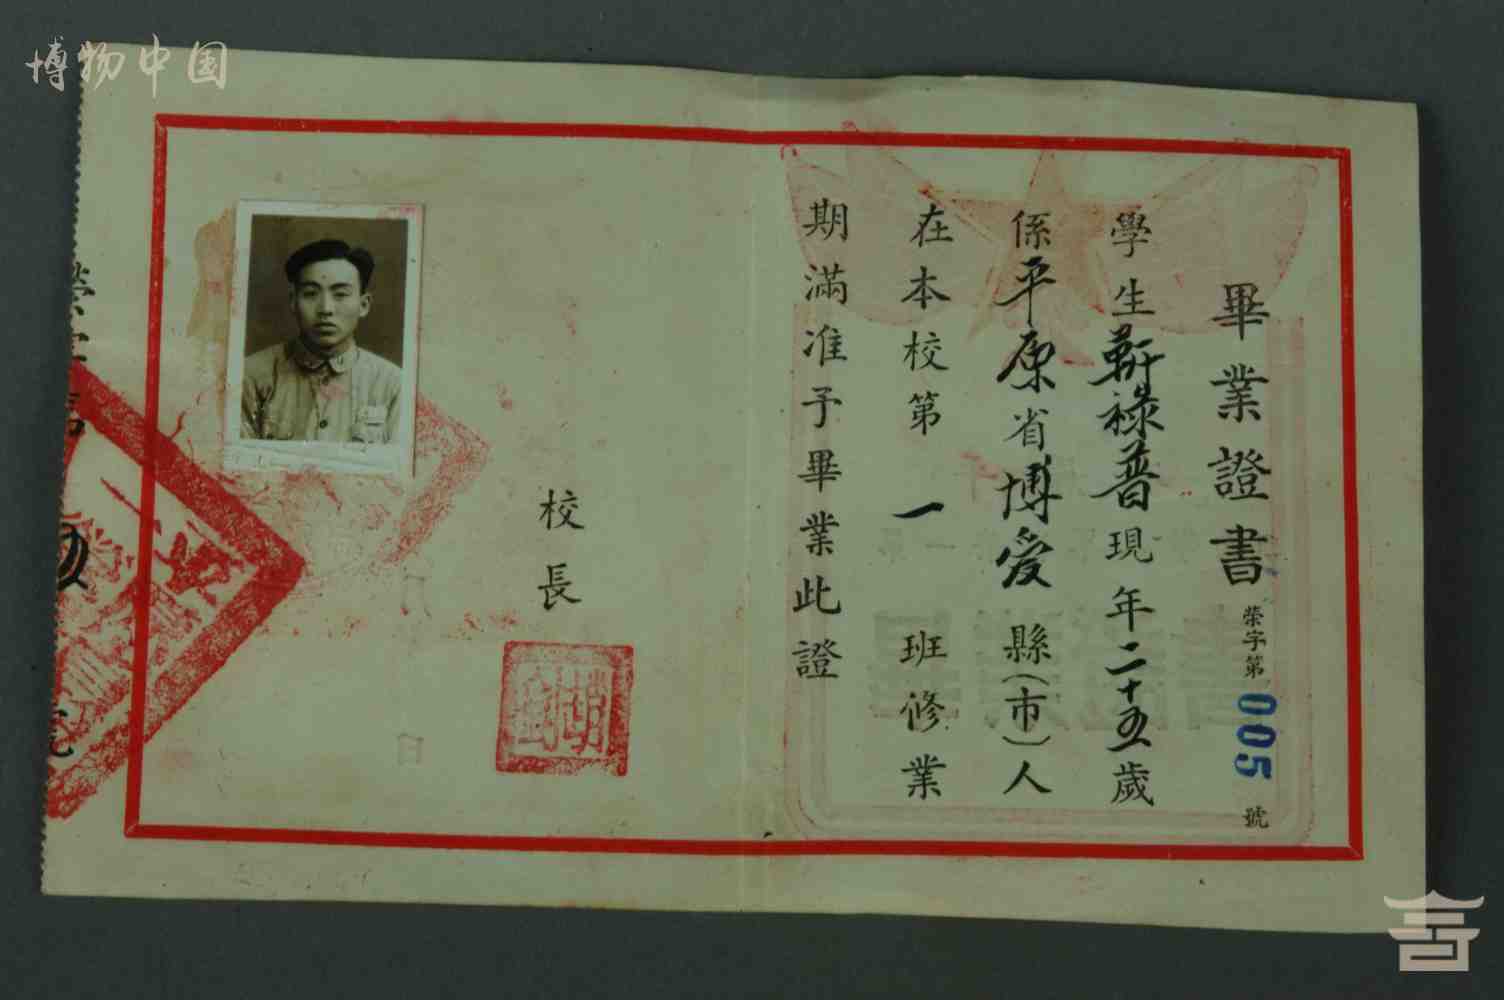 博物中国
畢業證書
榮字第005號
學生靳祿普現年二十五歲
係平原省博愛縣(市)人
在本校第一班修業
期滿准予畢業此證
校長
月
日